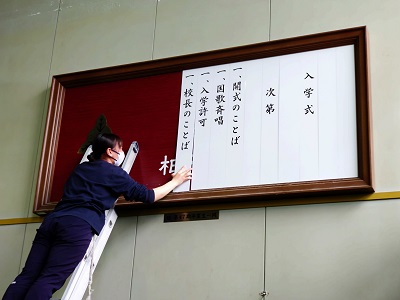 入学式
次第
一、開式のことば
一、国歌斉唱
一、入学許可
一、校長のことば